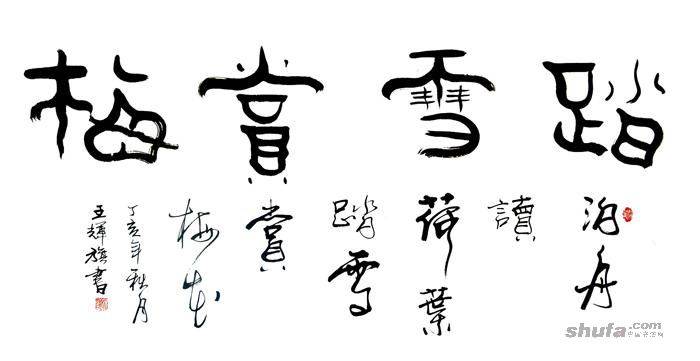 踏雪賞梅
泊舟
讀
荷葉
踏雪
賞
梅花
丁亥年秋月
王輝旗書
shufa.com